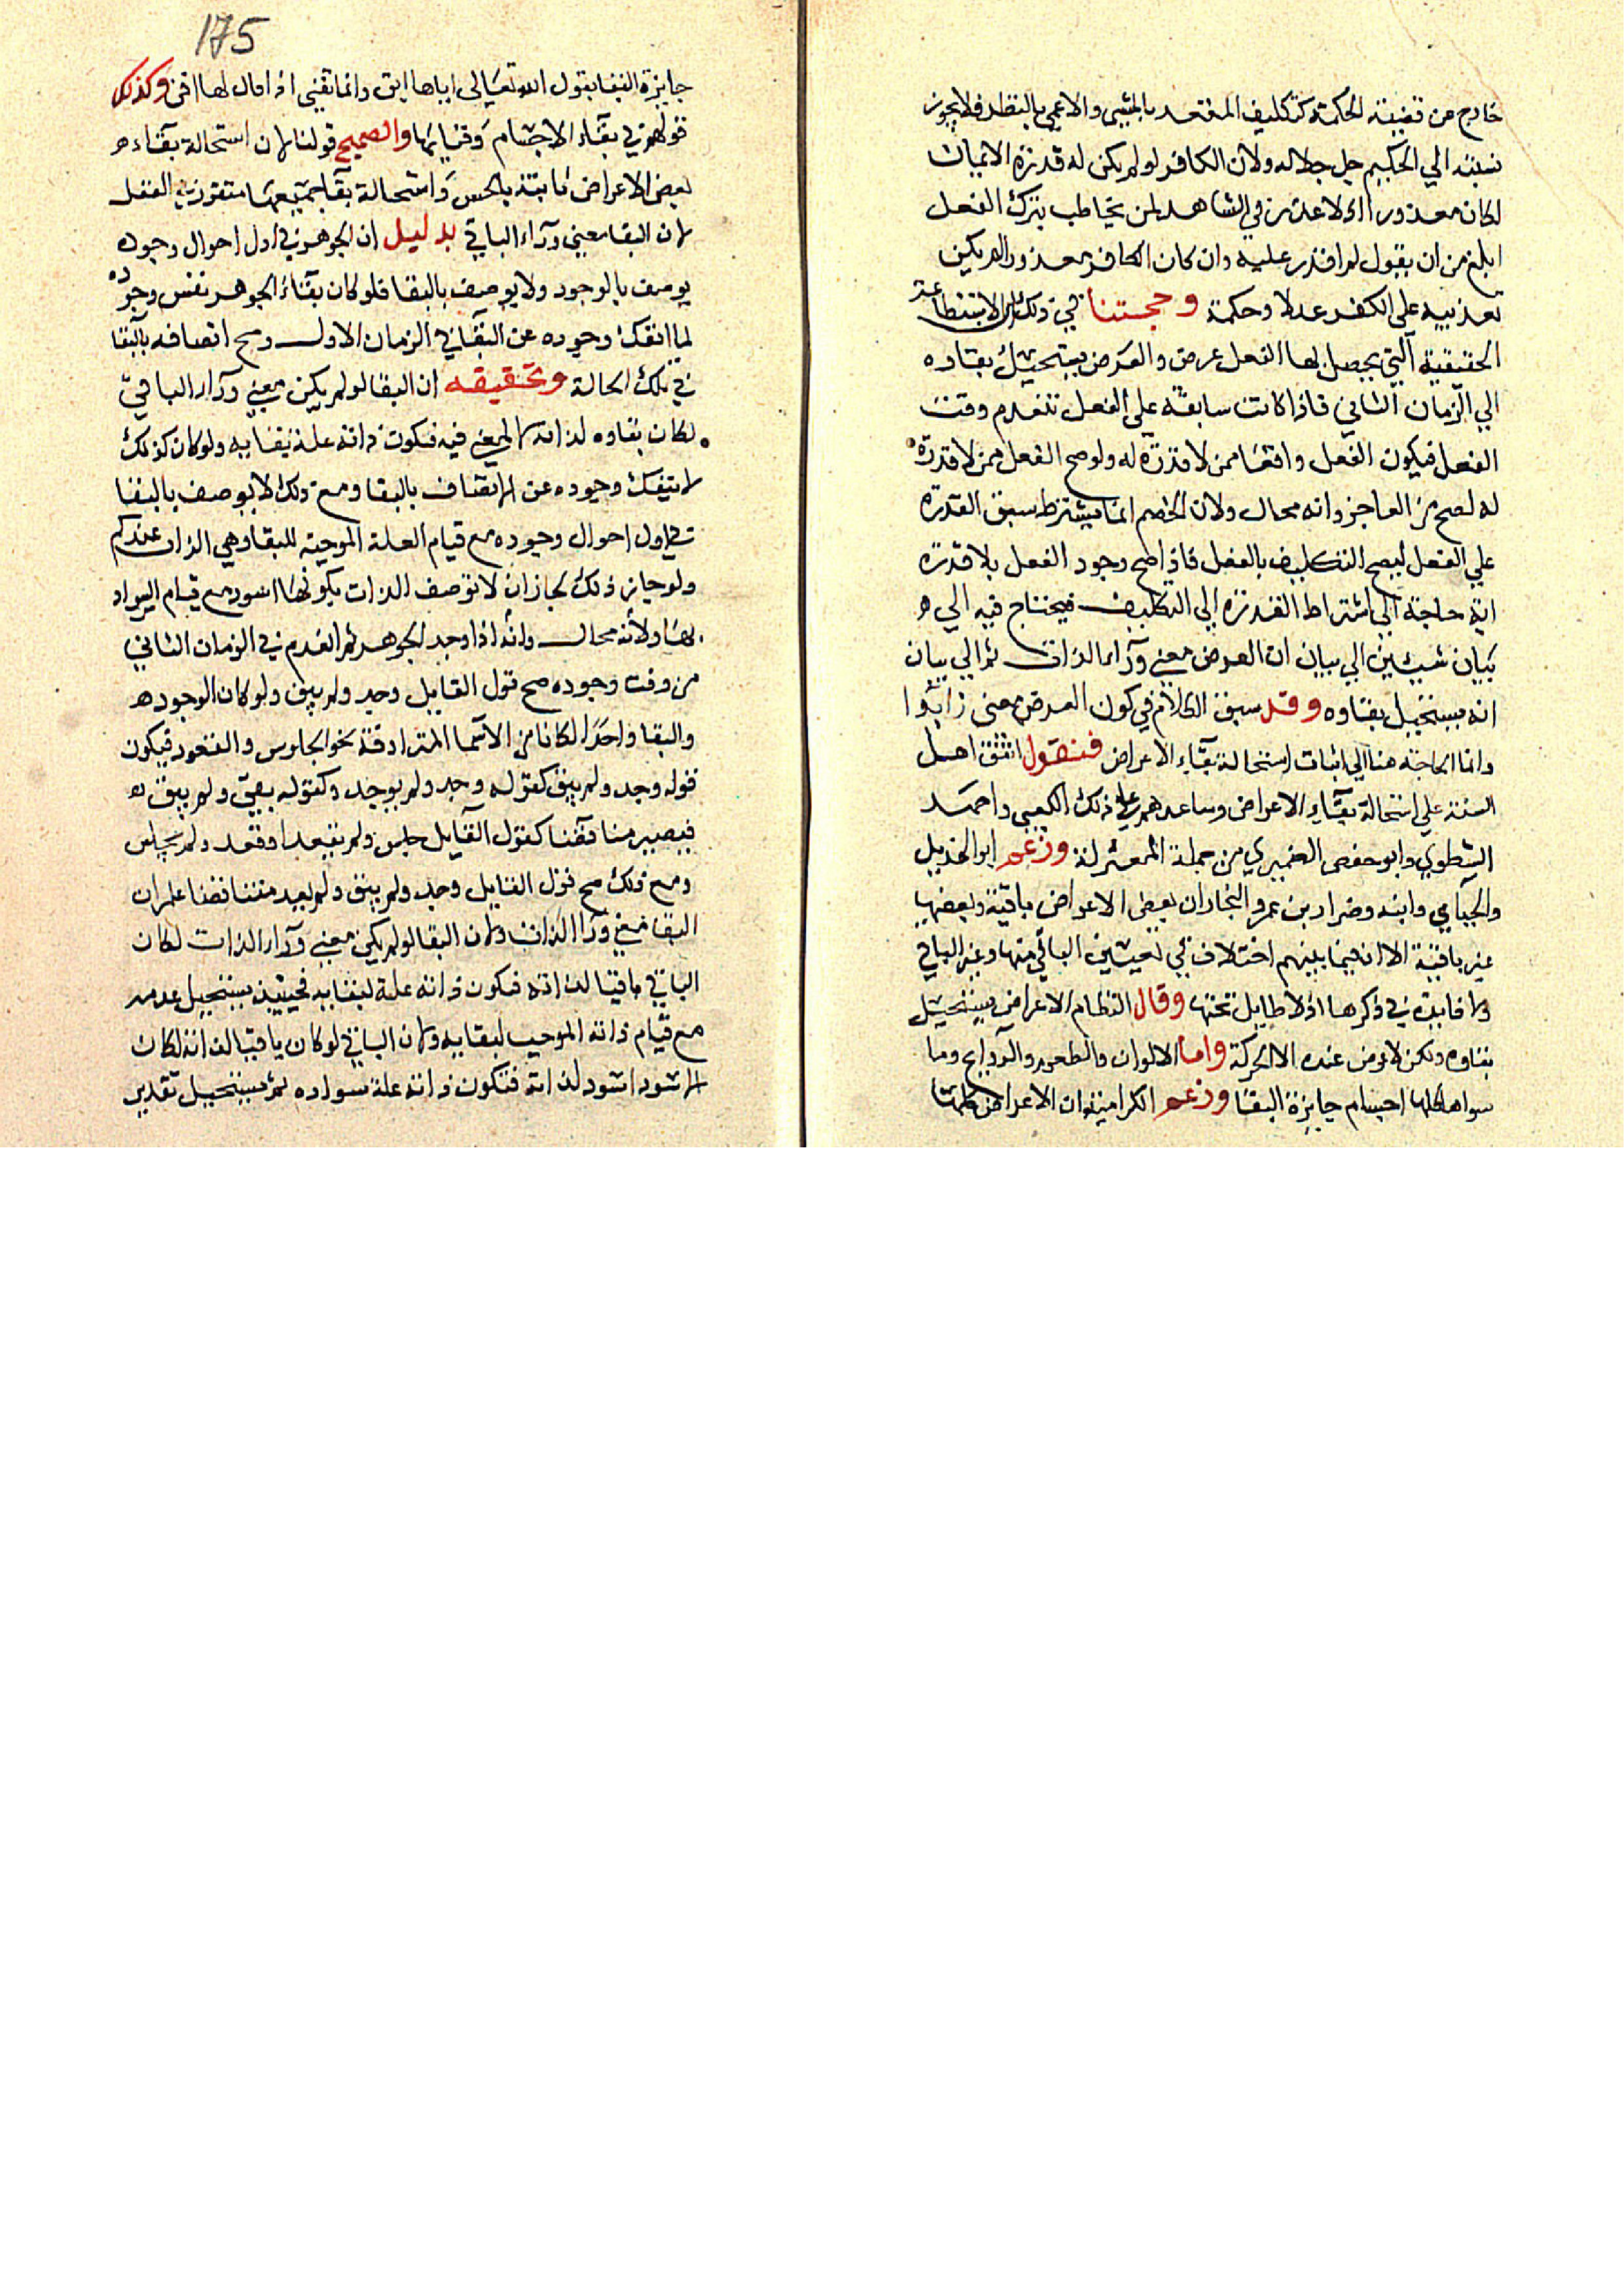 خارج من قضية الحكمة كتكليف المقعد بالمشي والاعمي بالنظر فلا يجوز
نسبته الي الحكيم جل جلاله ولان الكافر لو لم يكن له قدرة الايمان
لكان معذورا اذ لا عذر في الشاهد لمن يخاطب بترك الفعل
ابلغ من ان يقول لم اقدر عليه وان كان الكافر معذورا لم يكن
تعذيبه علي الكفر عدلا وحكمة وحجتنا في ذلك ان الاستطاعة
الحقيقية التي يحصل بها الفعل عرض والعرض يستحيل بقاوه
الي الزمان الثاني فاذا كانت سابقة علي الفعل تنعدم وقت
الفعل فيكون الفعل واقعا ممن لا قدرة له ولو صح الفعل ممن لا قدرة
له لصح من العاجز وانه محال ولان الخصم انما يشترط سبق القدرة
علي الفعل ليصح التكليف بالفعل فاذا صح وجود الفعل بلا قدرة
اية حاجة الي اشتراط القدرة الي التكليف فيحتاج فيه الي
بيان شيئين الي بيان ان العرض معني وراء الذات ثم الي بيان
انه يستحيل بقاوه وقد سبق الكلام في كون العرض معني زايدا
وانما الحاجة هنا الي اثبات استحالة بقاء الاعراض فنقول اتفق اهل
السنة علي استحالة بقاء الاعراض وساعدهم علي ذلك الكعبي واحمد
الشطوي وابو حفص الضميري من جملة المعتزلة وزعم ابو الهذيل
والجبآمي وابنه وضرار بن عمرو والنجار ان بعض الاعراض باقية وبعضها
غير باقية الا ان فيما بينهم اختلاف في تعيين الباقي منها وغير الباقي
ولا فايدة في ذكرها اذ لا طايل تحتها وقال النظام الاعراض يستحيل
بقاوه ولكن لا عرض عنده الا الحركة واما الالوان والطعوم والروايح وما
سواها كلها اجسام جايزة البقا وزعم الكرامية ان الاعراض كلها
175
جايزة البقا بقول الله تعالى اياها ابق وانما تفنى اذا قال لها افن وكذلك
قولهم في بقاء الاجسام وفنايها والصحيح قولنا لان استحالة بقاء
بعض الاعراض ثابتة بالحس واستحالة بقا جميعها متقررة في العقل
لان البقا معني وراء الباقي بدليل ان الجوهر في اول احوال وجوده
يوصف بالوجود ولا يوصف بالبقا فلو كان بقاء الجوهر نفس وجوده
لما انفك وجوده عن البقا في الزمان الاول وصح اتصافه بالبقا
في تلك الحالة وتحقيقه ان البقا لو لم يكن معني وراء الباقي
لكان بقاوه لذاته لا لمعني فيه فيكون ذاته علة لبقايه ولو كان كذلك
لا ينفك وجوده عن الاتصاف بالبقا ومع ذلك لا يوصف بالبقا
في اول احوال وجوده مع قيام العلة الموجبة للبقا وهي الذات عندكم
ولو جاز ذلك لجاز ان لا توصف الذات بكونها اسود مع قيام السواد
بها ولأنه محال وانه اذا وجد الجوهر ثم انعدم في الزمان الثاني
من وقت وجوده صح قول القايل وجد ولم يبق ولو كان الوجود
والبقا واحدا لكانا من الاسما المترادفة نحو الجلوس والقعود فيكون
قوله وجد ولم يبق كقوله وجد ولم يوجد وكقوله بقي ولم يبق
فيصير مناقضا كقول القايل جلس ولم يقعد او قعد ولم يجلس
ومع ذلك صح قول القايل وجد ولم يبق ولم يعد متناقضا علم ان
البقا معني وراء الذات ولان البقا لو لم يكن معني وراء الذات لكان
الباقي باقيا لذاته فيكون ذاته علة لبقايه فحينيذ يستحيل عدمه
مع قيام ذاته الموجب لبقايه ولان الباقي لو كان باقيا لذاته لكان
الاسود اسود لذاته فتكون ذاته علة سواده ثم يستحيل تقدير